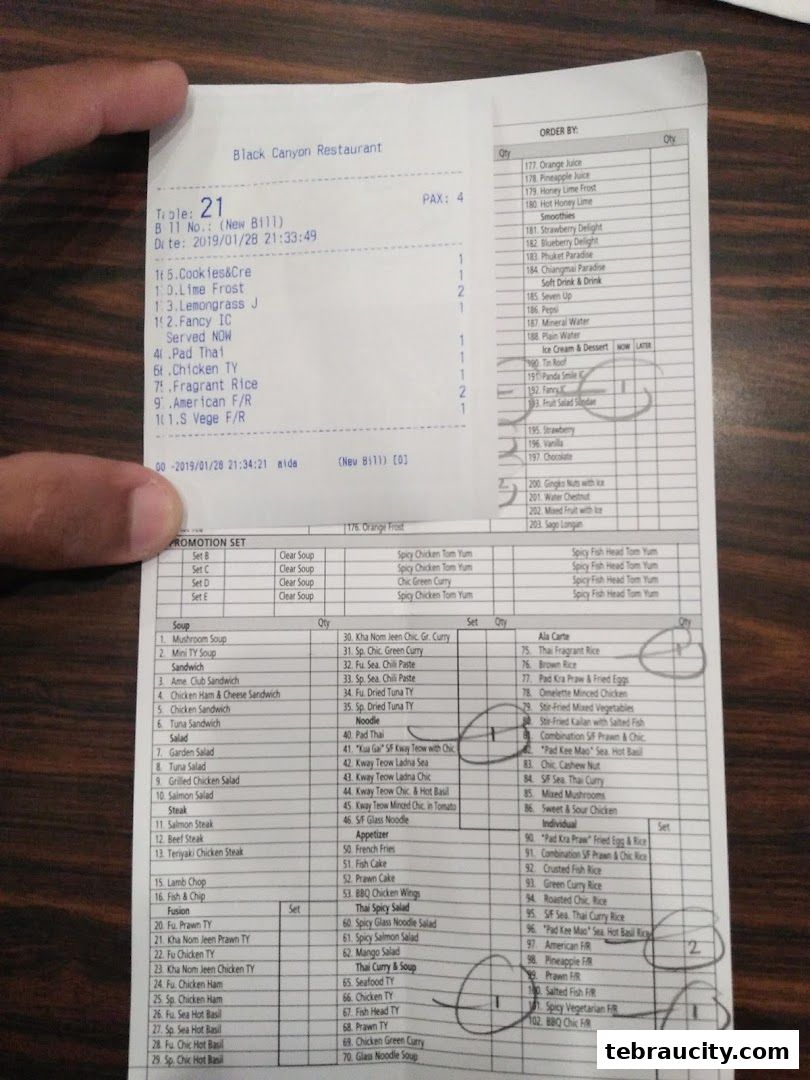 Black Canyon Restaurant
Table: 21 PAX: 4
Bill No.: (New Bill)
Date: 2019/01/28 21:33:49
5.Cookies&Cre 1
0.Lime Frost 1
3.Lemongrass J 2
2.Fancy IC 1
Served NOW
.Pad Thai 1
.Chicken TY 1
.Fragrant Rice 1
.American F/R 2
1.S Vege F/R 1
00 -2019/01/28 21:34:21 aida (New Bill) [0]
ORDER BY:
Qty Qty
177. Orange Juice
178. Pineapple Juice
179. Honey Lime Frost
180. Hot Honey Lime
Smoothies
181. Strawberry Delight
182. Blueberry Delight
183. Phuket Paradise
184. Chiangmai Paradise
Soft Drink & Drink
185. Seven Up
186. Pepsi
187. Mineral Water
188. Plain Water
Ice Cream & Dessert NOW LATER
190. Tin Roof
191. Panda Smile IC
192. Fancy IC 1
193. Fruit Salad Sundae
195. Strawberry
196. Vanilla
197. Chocolate
200. Gingko Nuts with Ice
201. Water Chestnut
202. Mixed Fruit with Ice
203. Sago Longan
176. Orange Frost
PROMOTION SET
Set B Clear Soup Spicy Chicken Tom Yum Spicy Fish Head Tom Yum
Set C Clear Soup Spicy Chicken Tom Yum Spicy Fish Head Tom Yum
Set D Clear Soup Chic Green Curry Spicy Fish Head Tom Yum
Set E Clear Soup Spicy Chicken Tom Yum Spicy Fish Head Tom Yum
Soup Qty
1. Mushroom Soup
2. Mini TY Soup
Sandwich
3. Ame. Club Sandwich
4. Chicken Ham & Cheese Sandwich
5. Chicken Sandwich
6. Tuna Sandwich
Salad
7. Garden Salad
8. Tuna Salad
9. Grilled Chicken Salad
10. Salmon Salad
Steak
11. Salmon Steak
12. Beef Steak
13. Teriyaki Chicken Steak
15. Lamb Chop
16. Fish & Chip
Fusion Set
20. Fu. Prawn TY
21. Kha Nom Jeen Prawn TY
22. Fu Chicken TY
23. Kha Nom Jeen Chicken TY
24. Fu. Chicken Ham
25. Sp. Chicken Ham
26. Fu. Sea Hot Basil
27. Sp. Sea Hot Basil
28. Fu. Chic Hot Basil
29. Sp. Chic Hot Basil
Set Qty
30. Kha Nom Jeen Chic. Gr. Curry
31. Sp. Chic. Green Curry
32. Fu. Sea. Chili Paste
33. Sp. Sea. Chili Paste
34. Fu. Dried Tuna TY
35. Sp. Dried Tuna TY
Noodle
40. Pad Thai 1
41. "Kua Gai" S/F Kway Teow with Chic
42. Kway Teow Ladna Sea
43. Kway Teow Ladna Chic
44. Kway Teow Chic. & Hot Basil
45. Kway Teow Minced Chic. in Tomato
46. S/F Glass Noodle
Appetizer
50. French Fries
51. Fish Cake
52. Prawn Cake
53. BBQ Chicken Wings
Thai Spicy Salad
60. Spicy Glass Noodle Salad
61. Spicy Salmon Salad
62. Mango Salad
Thai Curry & Soup
65. Seafood TY
66. Chicken TY 1
67. Fish Head TY
68. Prawn TY
69. Chicken Green Curry
70. Glass Noodle Soup
Ala Carte Qty
75. Thai Fragrant Rice 1
76. Brown Rice
77. Pad Kra Praw & Fried Eggs
78. Omelette Minced Chicken
79. Stir-Fried Mixed Vegetables
80. Stir-Fried Kailan with Salted Fish
81. Combination S/F Prawn & Chic.
82. "Pad Kee Mao" Sea. Hot Basil
83. Chic. Cashew Nut
84. S/F Sea. Thai Curry
85. Mixed Mushrooms
86. Sweet & Sour Chicken
Individual Set
90. "Pad Kra Praw" Fried Egg & Rice
91. Combination S/F Prawn & Chic Rice
92. Crusted Fish Rice
93. Green Curry Rice
94. Roasted Chic. Rice
95. S/F Sea. Thai Curry Rice
96. "Pad Kee Mao" Sea. Hot Basil Rice
97. American F/R 2
98. Pineapple F/R
99. Prawn F/R
100. Salted Fish F/R
101. Spicy Vegetarian F/R 1
102. BBQ Chic F/R
tebraucity.com